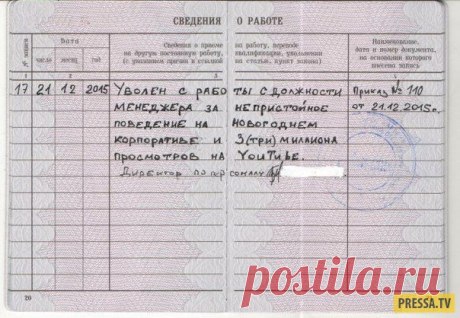 СВЕДЕНИЯ О РАБОТЕ
№ записи
Дата
число месяц год
Сведения о приеме на работу, переводе
на другую постоянную работу, квалификации, увольнении
(с указанием причин и ссылкой на статью, пункт закона)
Наименование,
дата и номер документа,
на основании которого
внесена запись
1 2 3 4
17 21 12 2015 УВОЛЕН С РАБОТЫ С ДОЛЖНОСТИ Приказ № 110
МЕНЕДЖЕРА ЗА НЕПРИСТОЙНОЕ от 21.12.2015г.
ПОВЕДЕНИЕ НА НОВОГОДНЕМ
КОРПОРАТИВЕ И 3(ТРИ) МИЛИОНА
ПРОСМОТРОВ НА YOUTUBE.
Директор по персоналу
20
postila.ru
PRESSA.TV